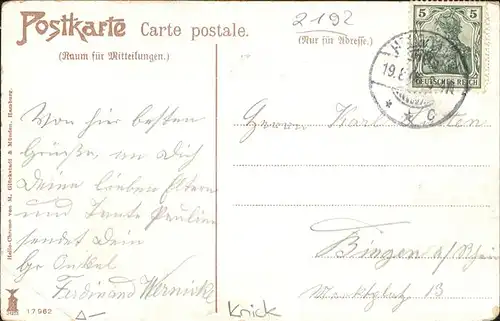 Postkarte Carte postale.
(Raum für Mitteilungen.)
2192
(Nur für Adresse.)
5 5
DEUTSCHES REICH
19.8
* * C
Von hier besten
Grüße, an Dich
Deine lieben Eltern
und Tante Pauline
sendet Dein
Gr Onkel
Ferdinand Wernicke
Karl
Bingen a/Rhein
Marktplatz 13
Knick
Helio-Chrome von M. Glückstadt & Münden, Hamburg.
17962